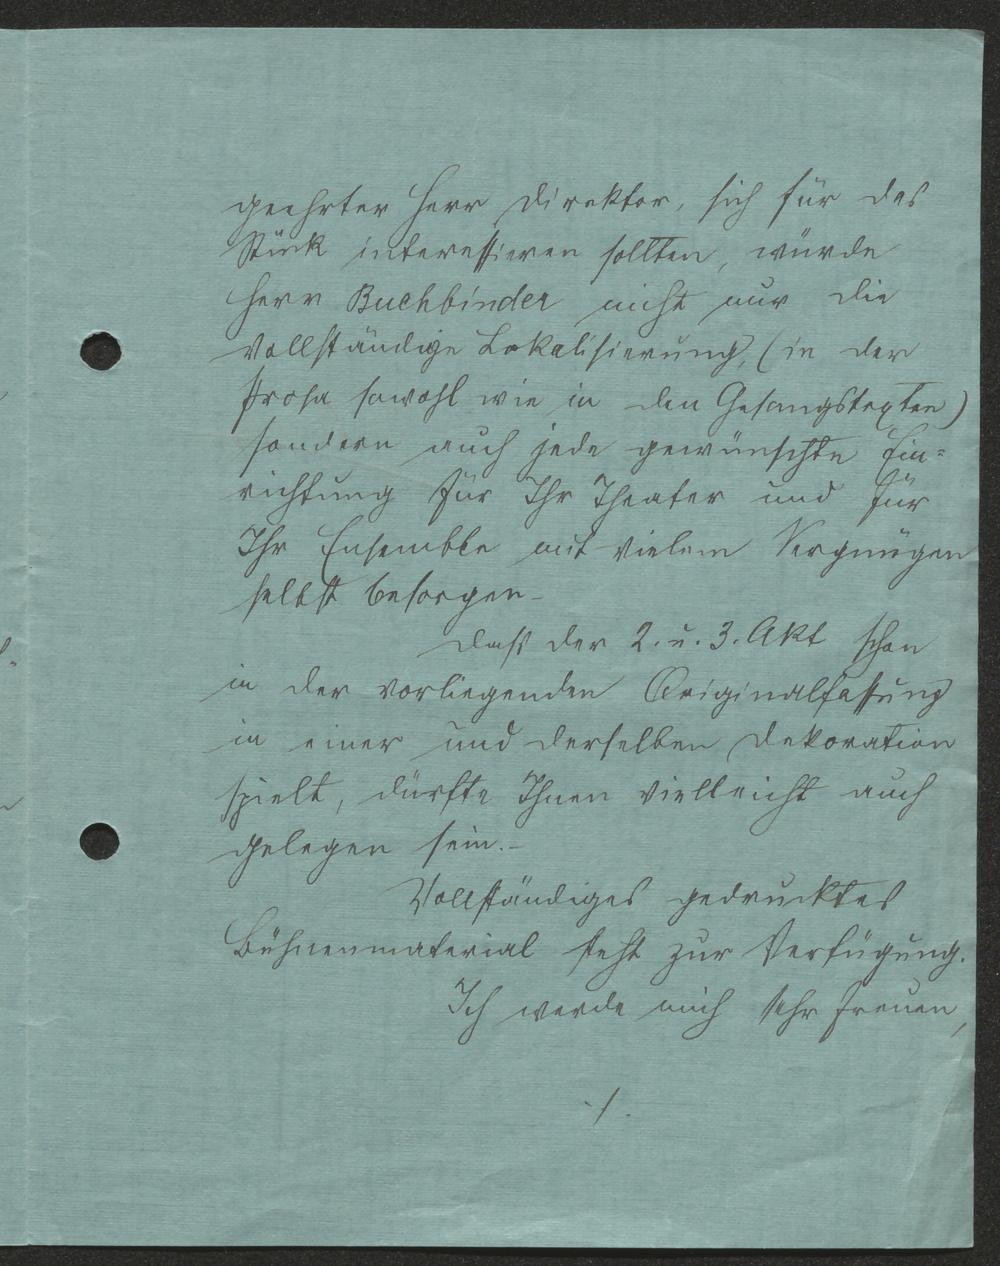 geehrter Herr Direktor, sich für das
Stück interessieren sollten, würde
Herr Buchbinder nicht nur die
vollständige Lokalisierung, (in der
Prosa sowohl wie in den Gesangstexten)
sondern auch jede gewünschte Ein=
richtung für Ihr Theater und für
Ihr Ensemble mit vielem Vergnügen
selbst besorgen.-
Dass der 2. u. 3. Akt schon
in der vorliegenden Originalfassung
in einer und derselben Dekoration
spielt, dürfte Ihnen vielleicht auch
gelegen sein.-
Vollständiges gedrucktes
Bühnenmaterial steht zur Verfügung.
Ich werde mich sehr freuen,
./.